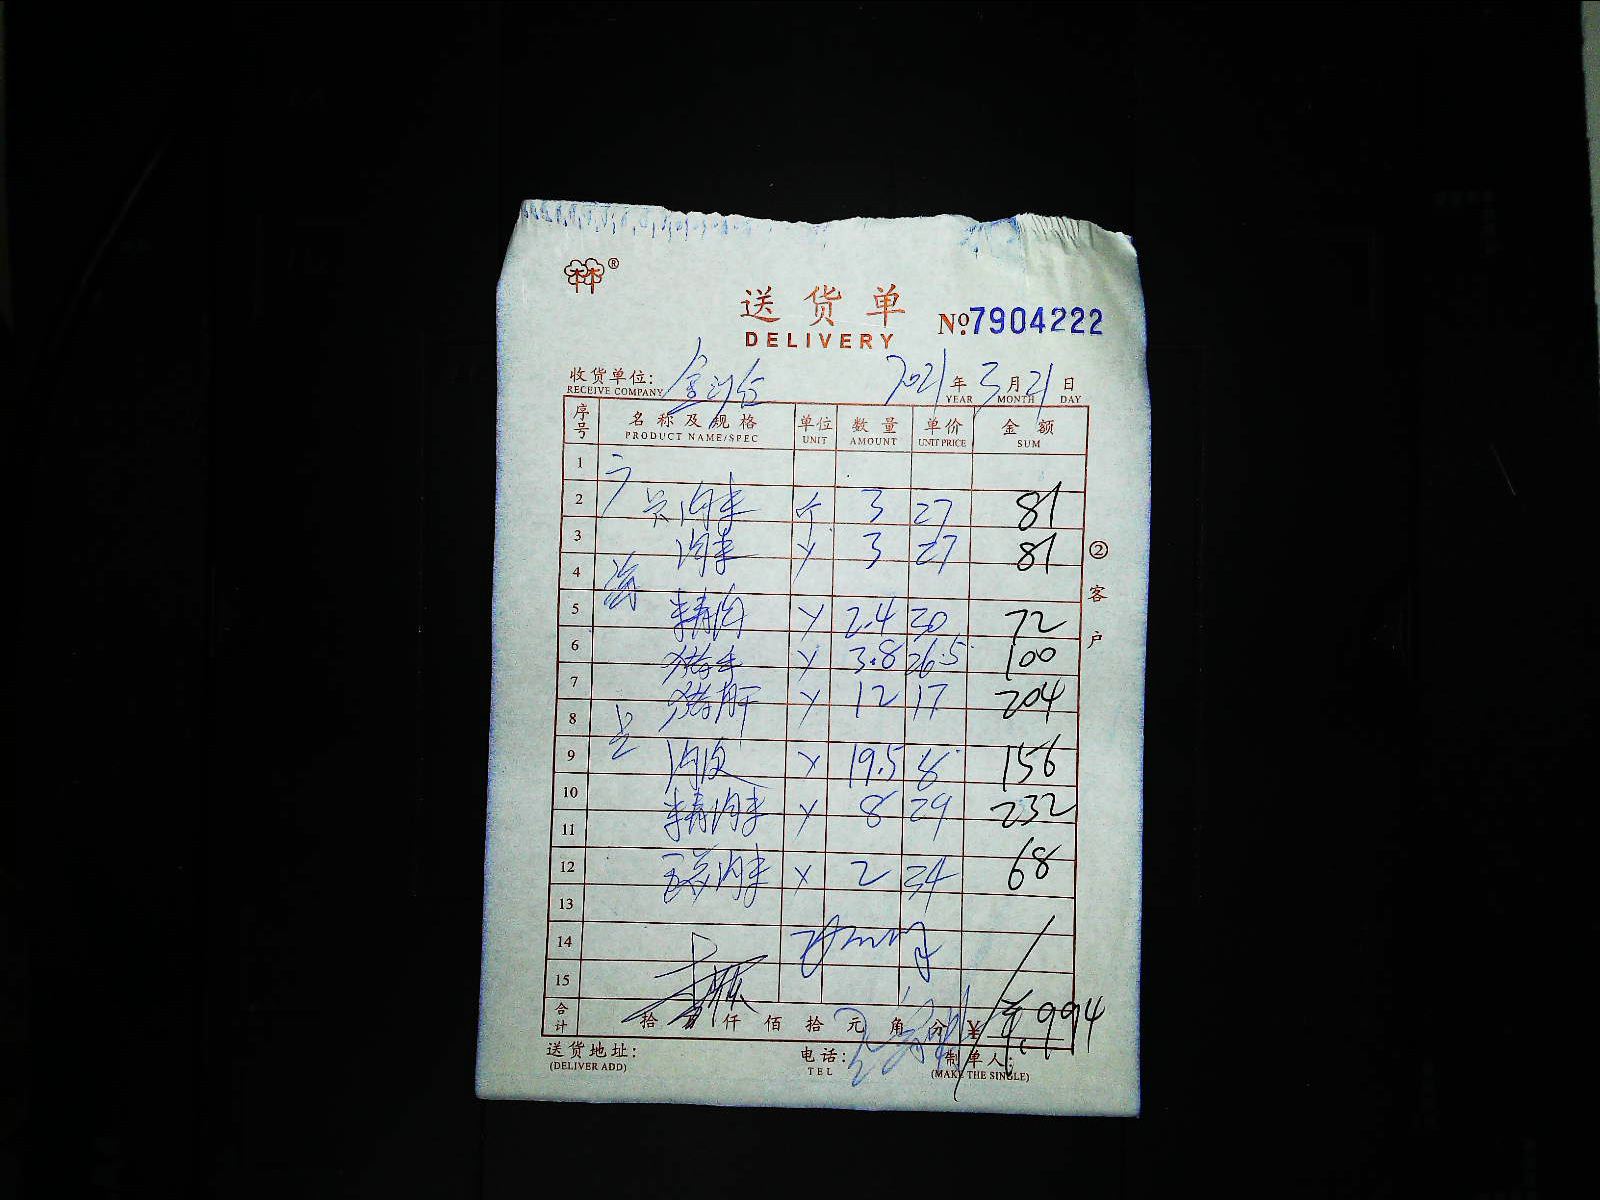 ®
送货单
DELIVERY
№7904222
收货单位: 2021年3月21日
RECEIVE COMPANY YEAR MONTH DAY
序号 名称及规格 单位 数量 单价 金额
PRODUCT NAME/SPEC UNIT AMOUNT UNIT PRICE SUM
1
2 肉末 斤 3 27 81
3 肉末 3 27 81
4
5 精肉 2.4 30 72
6 3.8 26.5 100
7 猪肝 12 17 204
8
9 肉皮 19.5 8 156
10 精肉末 8 29 232
11
12 五花肉末 2 34 68
13
14
15
合计 拾 仟 佰 拾 元 角 分 ¥ 994
② 客户
送货地址: 电话: 制单人:
(DELIVER ADD) TEL (MAKE THE SINGLE)